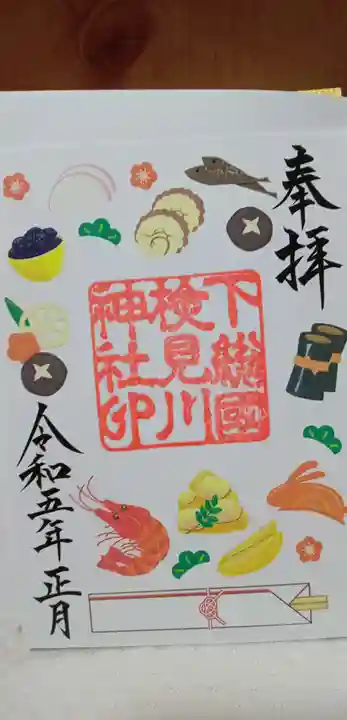 奉拝
下総國
検見川
神社印
令和五年正月